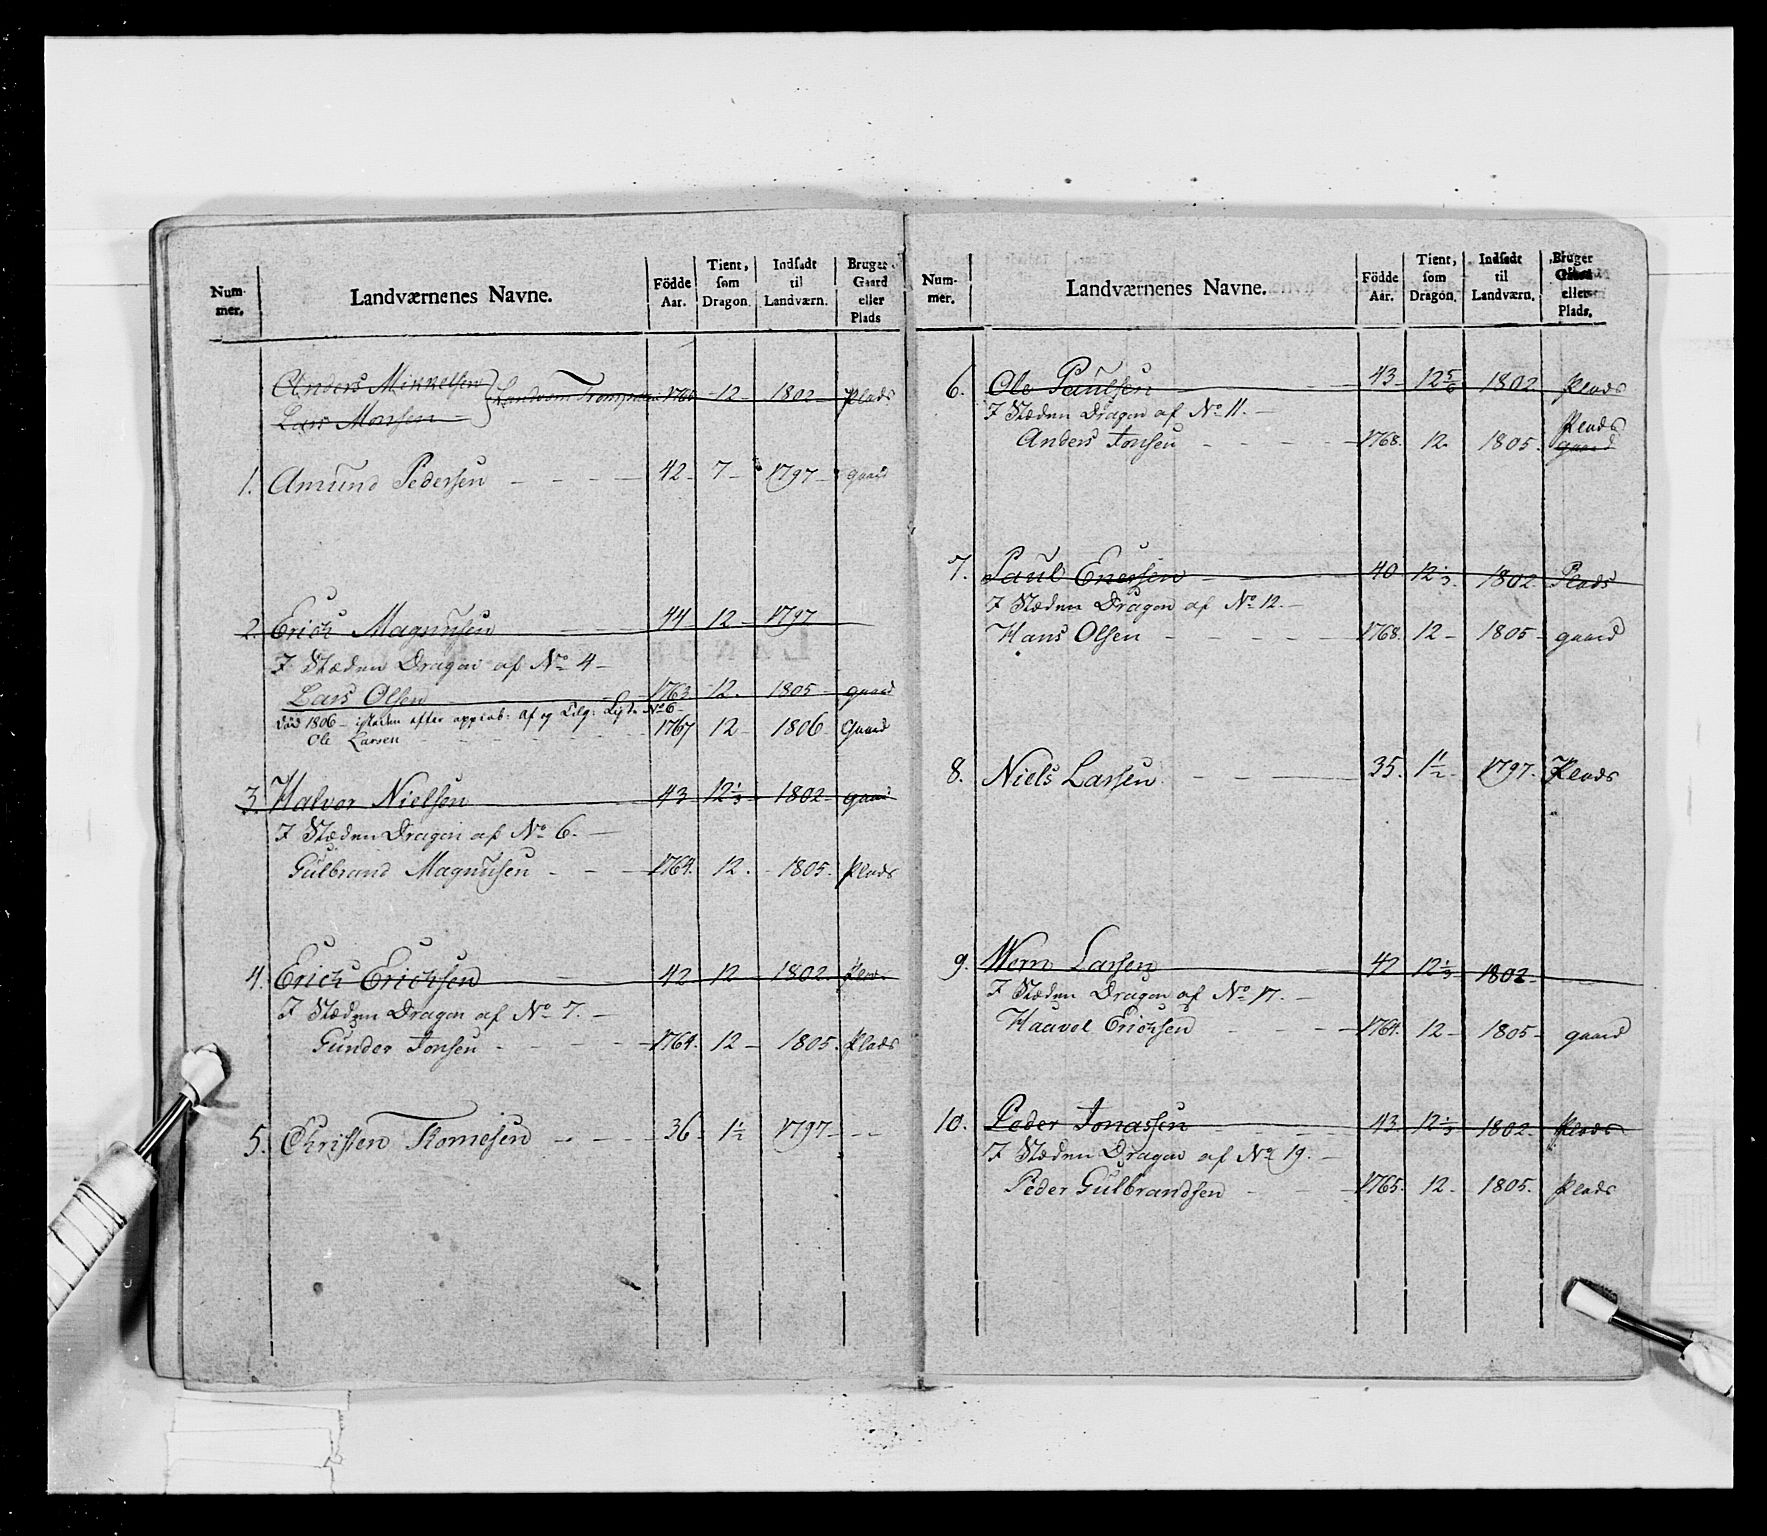 Num- mer. Landværnenes Navne. Födde Aar. Tient, som Dragon. Indsadt til Landværn. Bruger Gaard eller Plads
Anders Mikkelsen 1760 12 1802 Plads
Lars Monsen
1. Amund Pedersen 42 7 1797 gaard
2. Erich Magnusen 44 12 1797
I Stæden Dragon af No 4
Lars Olsen 1763 12 1805 gaard
Död 1806 istæden efter No 6
Ole Larsen 1767 12 1806 Gaard
3. Halvor Nielsen 43 12 1/3 1802 gaard
I Stæden Dragon af No 6.
Gulbrand Magnusen 1764 12 1805 Plads
4. Erich Erichsen 42 12 1802 Plads
I Stæden Dragon af No 7.
Gunder Jonsen 1764 12 1805 Plads
5. Christen Thomesen 36 1 1/2 1797
Num- mer. Landværnenes Navne. Födde Aar. Tient, som Dragon. Indsadt til Landværn. Bruger Gaard eller Plads.
6. Ole Paulsen 43 12 5/6 1802 Plads
I Stæden Dragon af No 11.
Plads
Anders Jonsen 1768 12 1805 gaard
7. Paul Enersen 40 12 1/3 1802 Plads
I Stæden Dragon af No 12.
Hans Olsen 1768 12 1805 gaard
8. Niels Larsen 35 1 1/2 1797 Plads
9. Larsen 42 12 1/3 1802
I Stæden Dragon af No 17.
Haavel Erichsen 1764 12 1805 gaard
10. Peder Jonassen 43 12 1/3 1802 Plads
I Stæden Dragon af No 19.
Peder Gulbrandsen 1765 12 1805 Plads